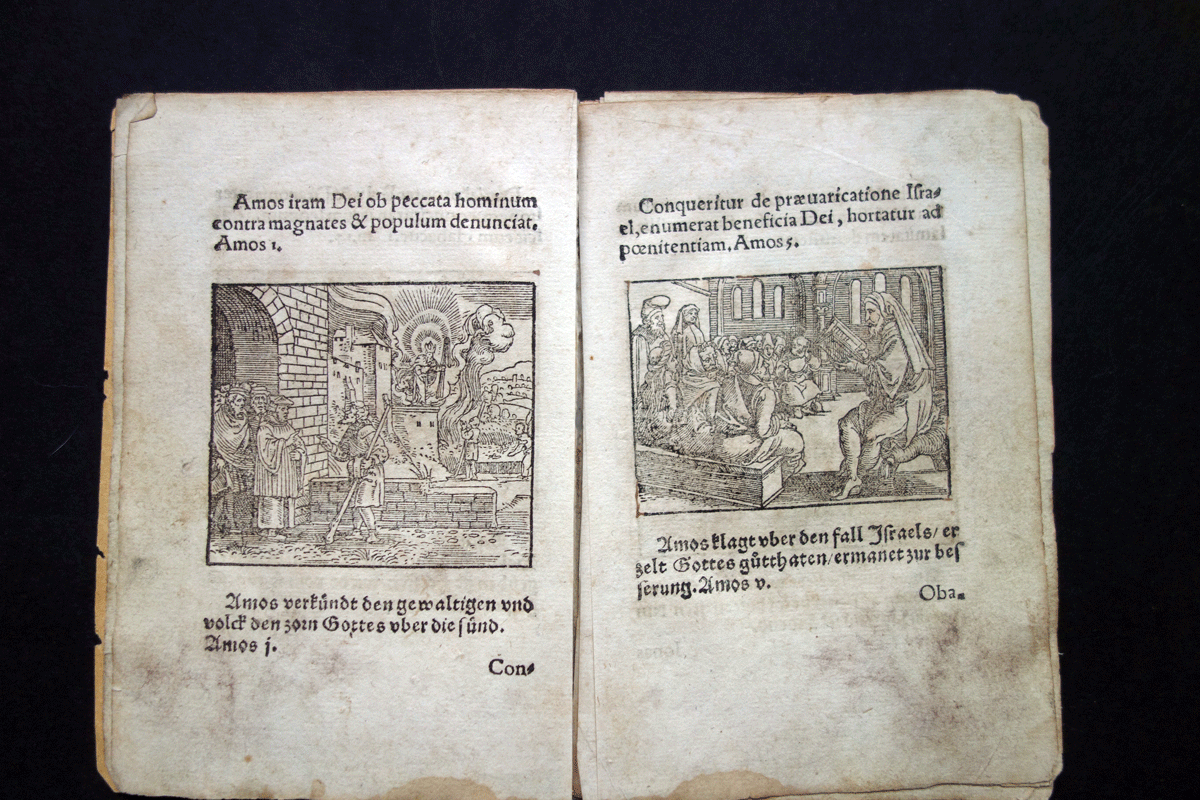 Amos iram Dei ob peccata hominum
contra magnates & populum denunciat.
Amos 1.
Amos verkündt den gewaltigen vnd
volck den zorn Gottes vber die sünd.
Amos j.
Con⸗
Conqueritur de præuaricatione Iſra⸗
el, enumerat beneficia Dei, hortatur ad
pœnitentiam. Amos 5.
Amos klagt vber den fall Iſraels/ er
zelt Gottes gůtthaten/ ermanet zur beſ
ſerung. Amos v.
Oba⸗